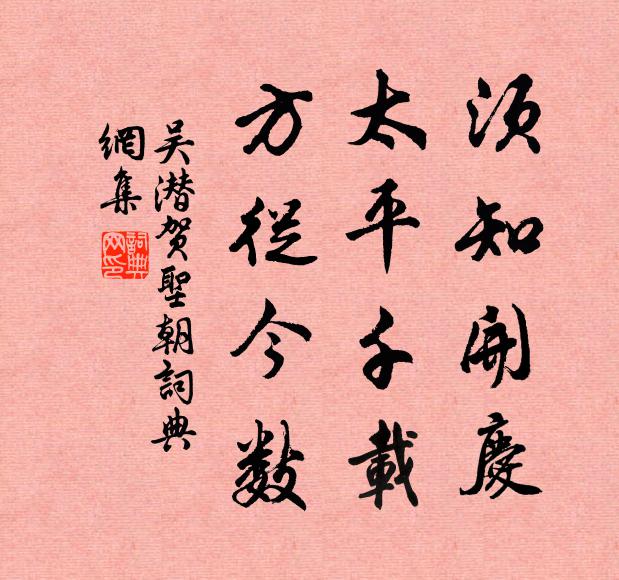 须知開慶
太平千載
方從今数
吴潜贺聖朝詞典
網集
詞典
网印